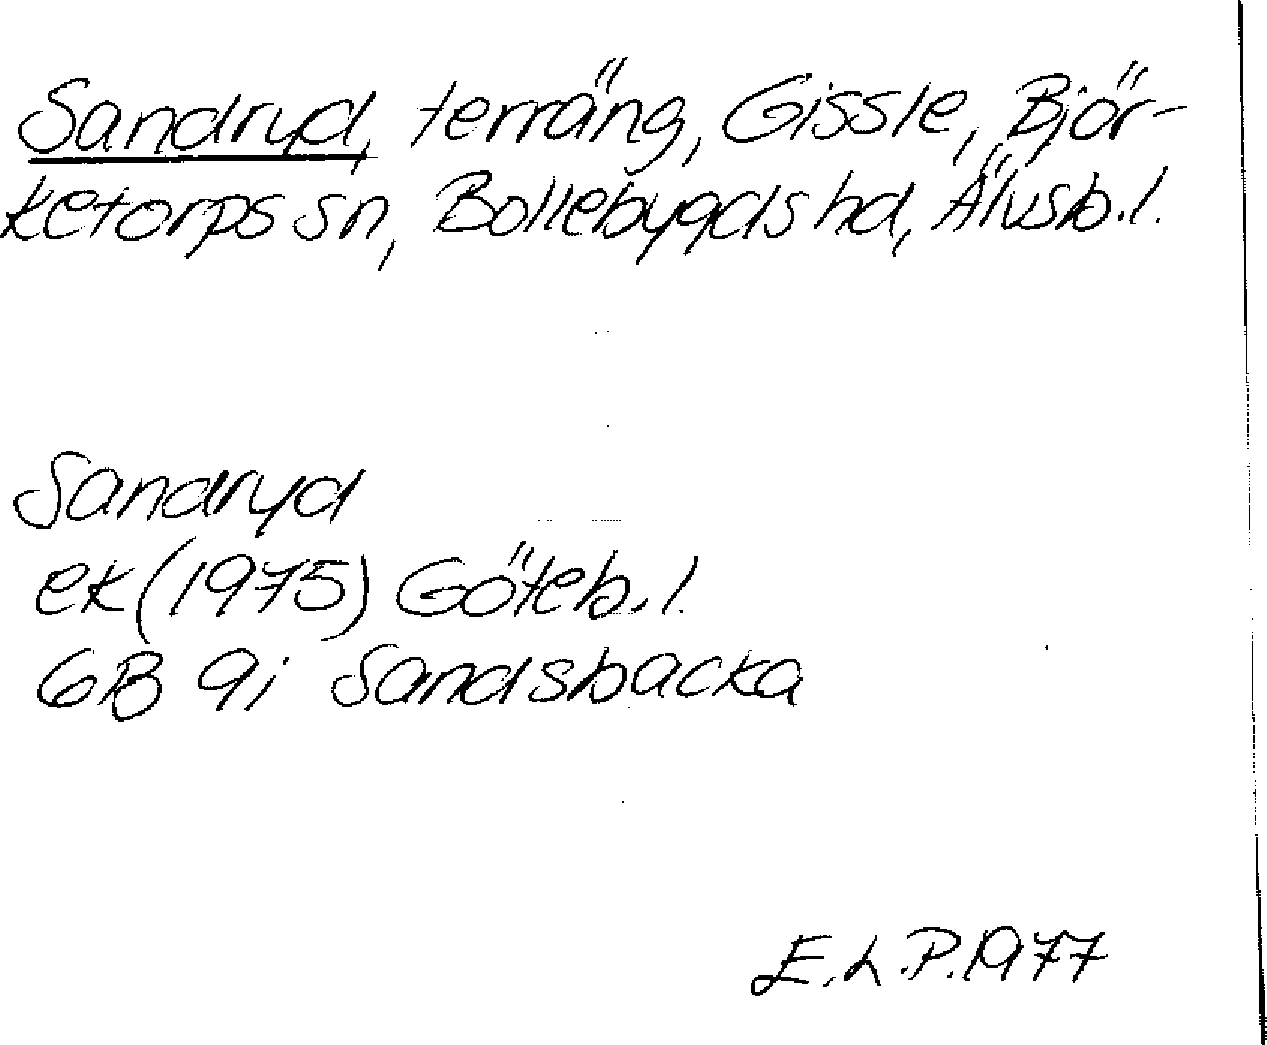 Sandryd, terräng, Gissle, Björ-
ketorps sn, Bollebygds hd, Älvsb.l.
Sandryd
ek (1975) Göteb.l.
6B 9i Sandsbacka
E.L.P.1977